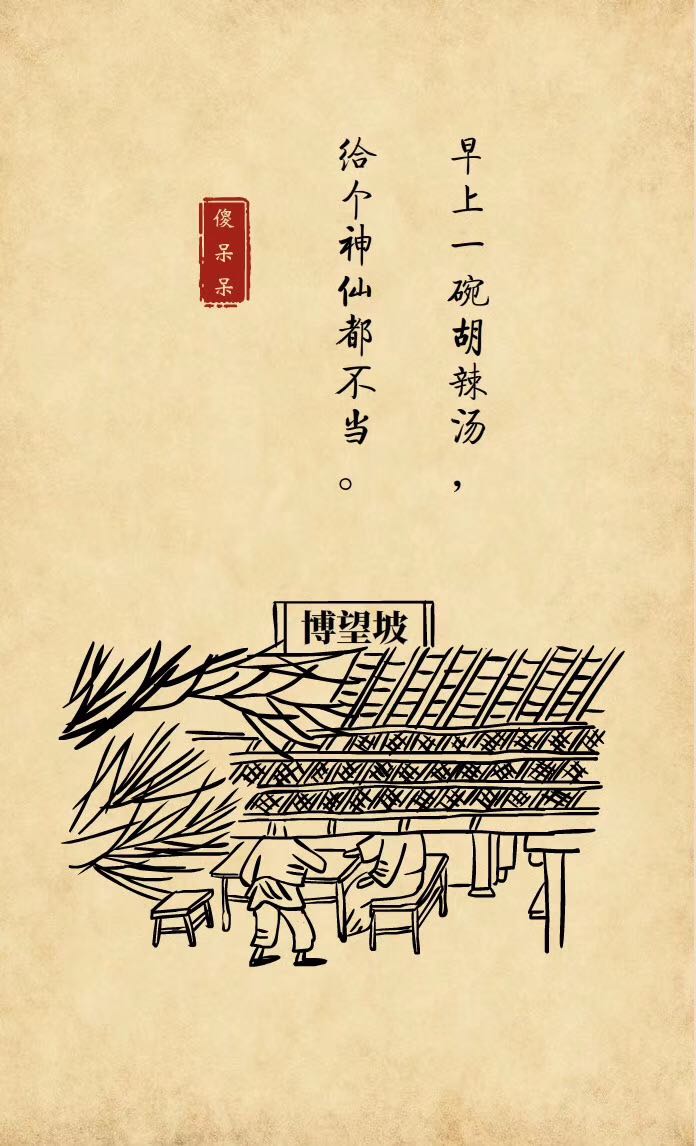 早上一碗胡辣汤，
给个神仙都不当。
傻呆呆
博望坡